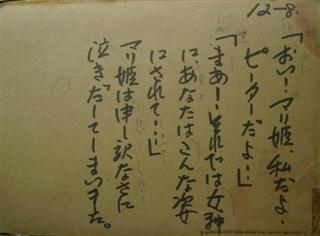 12-8.
「おい！マリ姫、私だよ・
ピーターだよ！」
「まあー！それでは女神
に、あなたはこんな姿
にされて・・・」
マリ姫は申し訳なさに
泣きだしてしまいました。